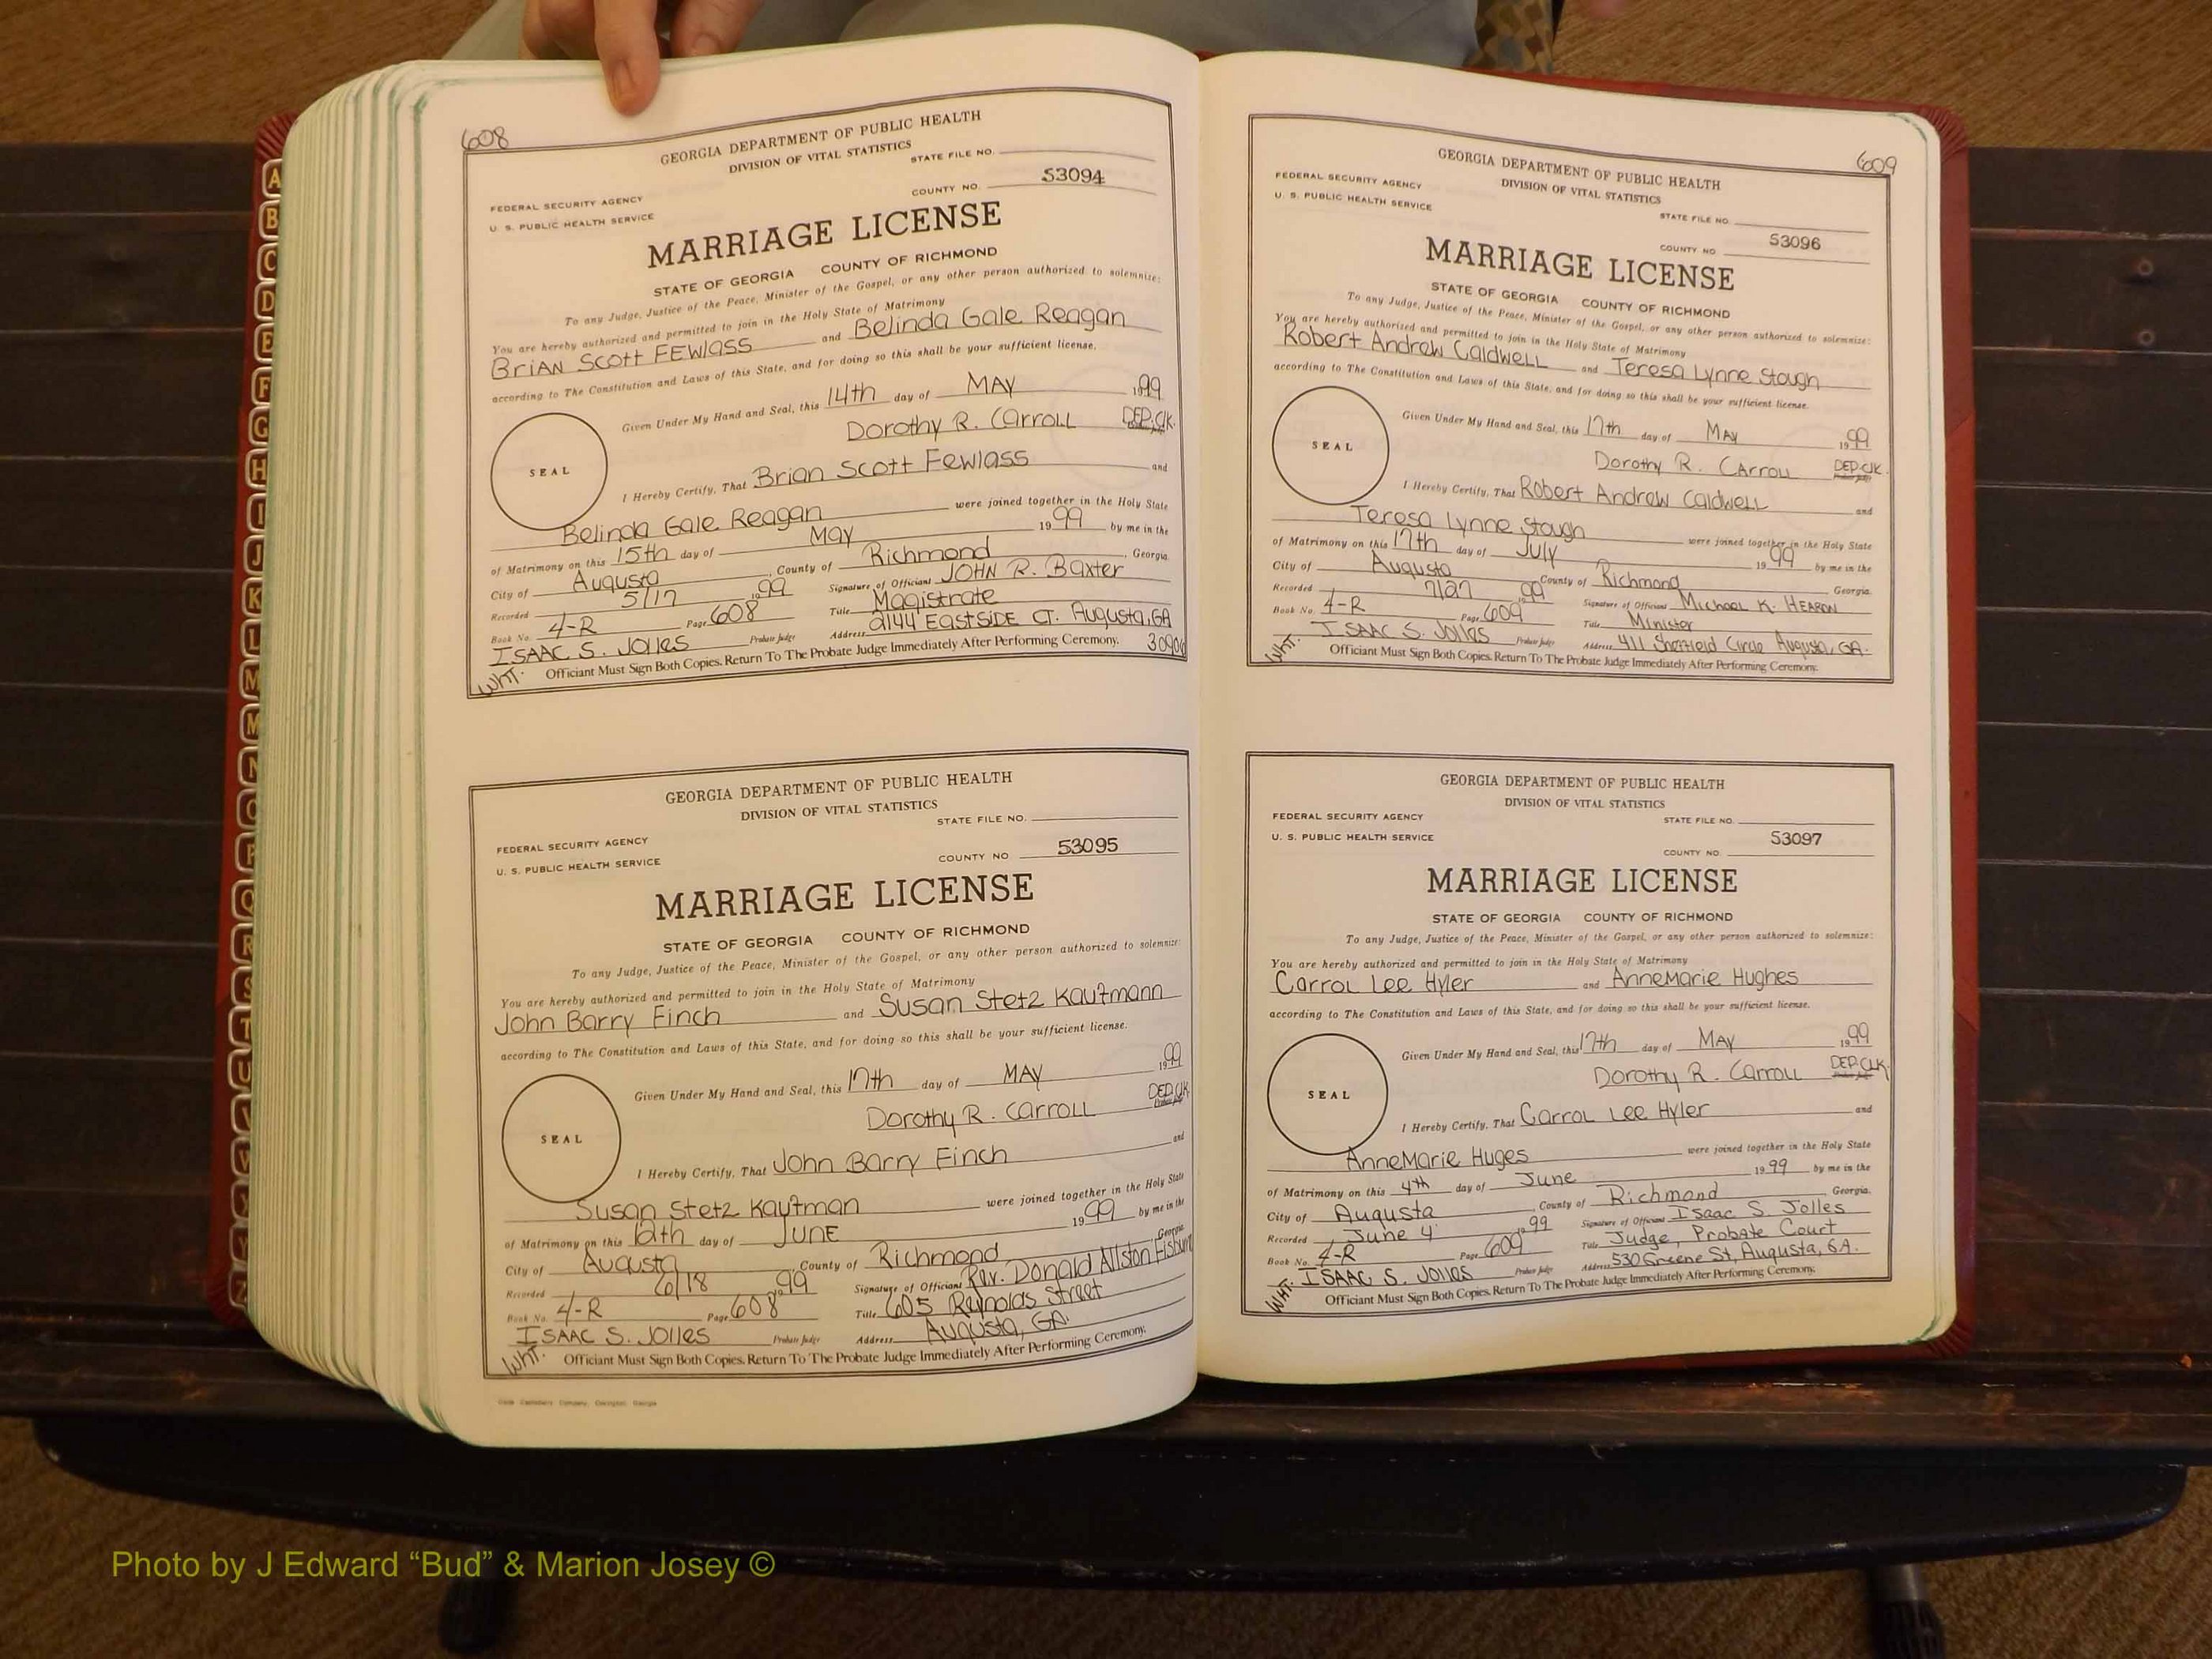 608
GEORGIA DEPARTMENT OF PUBLIC HEALTH
DIVISION OF VITAL STATISTICS
STATE FILE NO.
FEDERAL SECURITY AGENCY
U. S. PUBLIC HEALTH SERVICE
COUNTY NO. 53094
MARRIAGE LICENSE
STATE OF GEORGIA COUNTY OF RICHMOND
To any Judge, Justice of the Peace, Minister of the Gospel, or any other person authorized to solemnize:
You are hereby authorized and permitted to join in the Holy State of Matrimony
BriAN Scott FEWlASS and Belinda Gale Reagan
according to The Constitution and Laws of this State, and for doing so this shall be your sufficient license.
Given Under My Hand and Seal, this 14th day of MAY 1999
Dorothy R. Carroll DEP. Clk.
SEAL
I Hereby Certify, That Brian Scott Fewlass and
Belinda Gale Reagan were joined together in the Holy State
of Matrimony on this 15th day of May 1999 by me in the
City of Augusta, County of Richmond, Georgia.
Recorded 5/17 1999 Signature of Official JOHN R. Baxter
Book No. 4-R Page 608 Title Magistrate
ISAAC S. Jolles Probate Judge Address 2144 EASTSIDE CT. Augusta, GA
WHT. Officiant Must Sign Both Copies. Return To The Probate Judge Immediately After Performing Ceremony. 30906
GEORGIA DEPARTMENT OF PUBLIC HEALTH
DIVISION OF VITAL STATISTICS
STATE FILE NO.
FEDERAL SECURITY AGENCY
U. S. PUBLIC HEALTH SERVICE
COUNTY NO 53095
MARRIAGE LICENSE
STATE OF GEORGIA COUNTY OF RICHMOND
To any Judge, Justice of the Peace, Minister of the Gospel, or any other person authorized to solemnize:
You are hereby authorized and permitted to join in the Holy State of Matrimony
John Barry Finch and Susan Stetz Kaufmann
according to The Constitution and Laws of this State, and for doing so this shall be your sufficient license.
Given Under My Hand and Seal, this 17th day of MAY 1999
Dorothy R. Carroll DEP. Clk
SEAL
I Hereby Certify, That John Barry Finch and
Susan Stetz Kaufman were joined together in the Holy State
of Matrimony on this 12th day of JUNE 1999 by me in the
City of Augusta, County of Richmond Georgia
Recorded 6/18 1999 Signature of Official Rev. Donald Allston
Book No. 4-R Page 608 Title 605 Reynolds Street
ISAAC S. Jolles Probate Judge Address Augusta, GA.
WHT. Officiant Must Sign Both Copies. Return To The Probate Judge Immediately After Performing Ceremony.
609
GEORGIA DEPARTMENT OF PUBLIC HEALTH
DIVISION OF VITAL STATISTICS
FEDERAL SECURITY AGENCY
U. S. PUBLIC HEALTH SERVICE
STATE FILE NO.
COUNTY NO 53096
MARRIAGE LICENSE
STATE OF GEORGIA COUNTY OF RICHMOND
To any Judge, Justice of the Peace, Minister of the Gospel, or any other person authorized to solemnize:
You are hereby authorized and permitted to join in the Holy State of Matrimony
Robert Andrew Caldwell and Teresa Lynne Stough
according to The Constitution and Laws of this State, and for doing so this shall be your sufficient license.
Given Under My Hand and Seal, this 17th day of MAY 1999
Dorothy R. Carroll DEP. Clk.
SEAL
I Hereby Certify, That Robert Andrew Caldwell and
Teresa Lynne Stough were joined together in the Holy State
of Matrimony on this 17th day of July 1999 by me in the
City of Augusta County of Richmond Georgia
Recorded 7/27 99 Signature of Official Michael K. HEARON
Book No. 4-R Page 609 Title Minister
ISAAC S. Jolles Probate Judge Address 411 Circle Augusta, GA.
WHT. Officiant Must Sign Both Copies. Return To The Probate Judge Immediately After Performing Ceremony.
GEORGIA DEPARTMENT OF PUBLIC HEALTH
DIVISION OF VITAL STATISTICS
FEDERAL SECURITY AGENCY
STATE FILE NO.
U. S. PUBLIC HEALTH SERVICE
COUNTY NO. 53097
MARRIAGE LICENSE
STATE OF GEORGIA COUNTY OF RICHMOND
To any Judge, Justice of the Peace, Minister of the Gospel, or any other person authorized to solemnize:
You are hereby authorized and permitted to join in the Holy State of Matrimony
Carrol Lee Hyler and AnneMarie Hughes
according to The Constitution and Laws of this State, and for doing so this shall be your sufficient license.
Given Under My Hand and Seal, this 17th day of MAY 1999
Dorothy R. Carroll DEP. CLK.
SEAL
I Hereby Certify, That Carrol Lee Hyler and
AnneMarie Huges were joined together in the Holy State
of Matrimony on this 4th day of June 1999 by me in the
City of Augusta, County of Richmond Georgia.
Recorded June 4 1999 Signature of Official Isaac S. Jolles
Book No. 4-R Page 609 Title Judge, Probate Court
ISAAC S. Jolles Probate Judge Address 530 Greene St, Augusta, GA.
WHT. Officiant Must Sign Both Copies. Return To The Probate Judge Immediately After Performing Ceremony.
A
B
C
D
E
F
G
H
I
J
K
L
M
Photo by J Edward “Bud” & Marion Josey ©